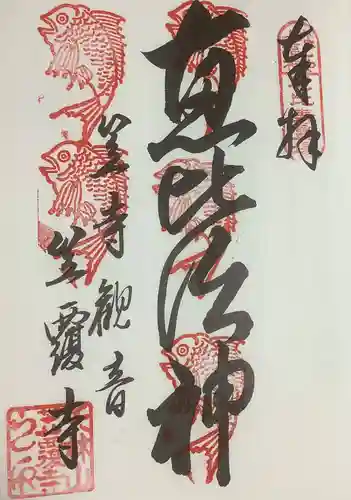 奉拝
恵比须神
笠寺観音
笠覆寺